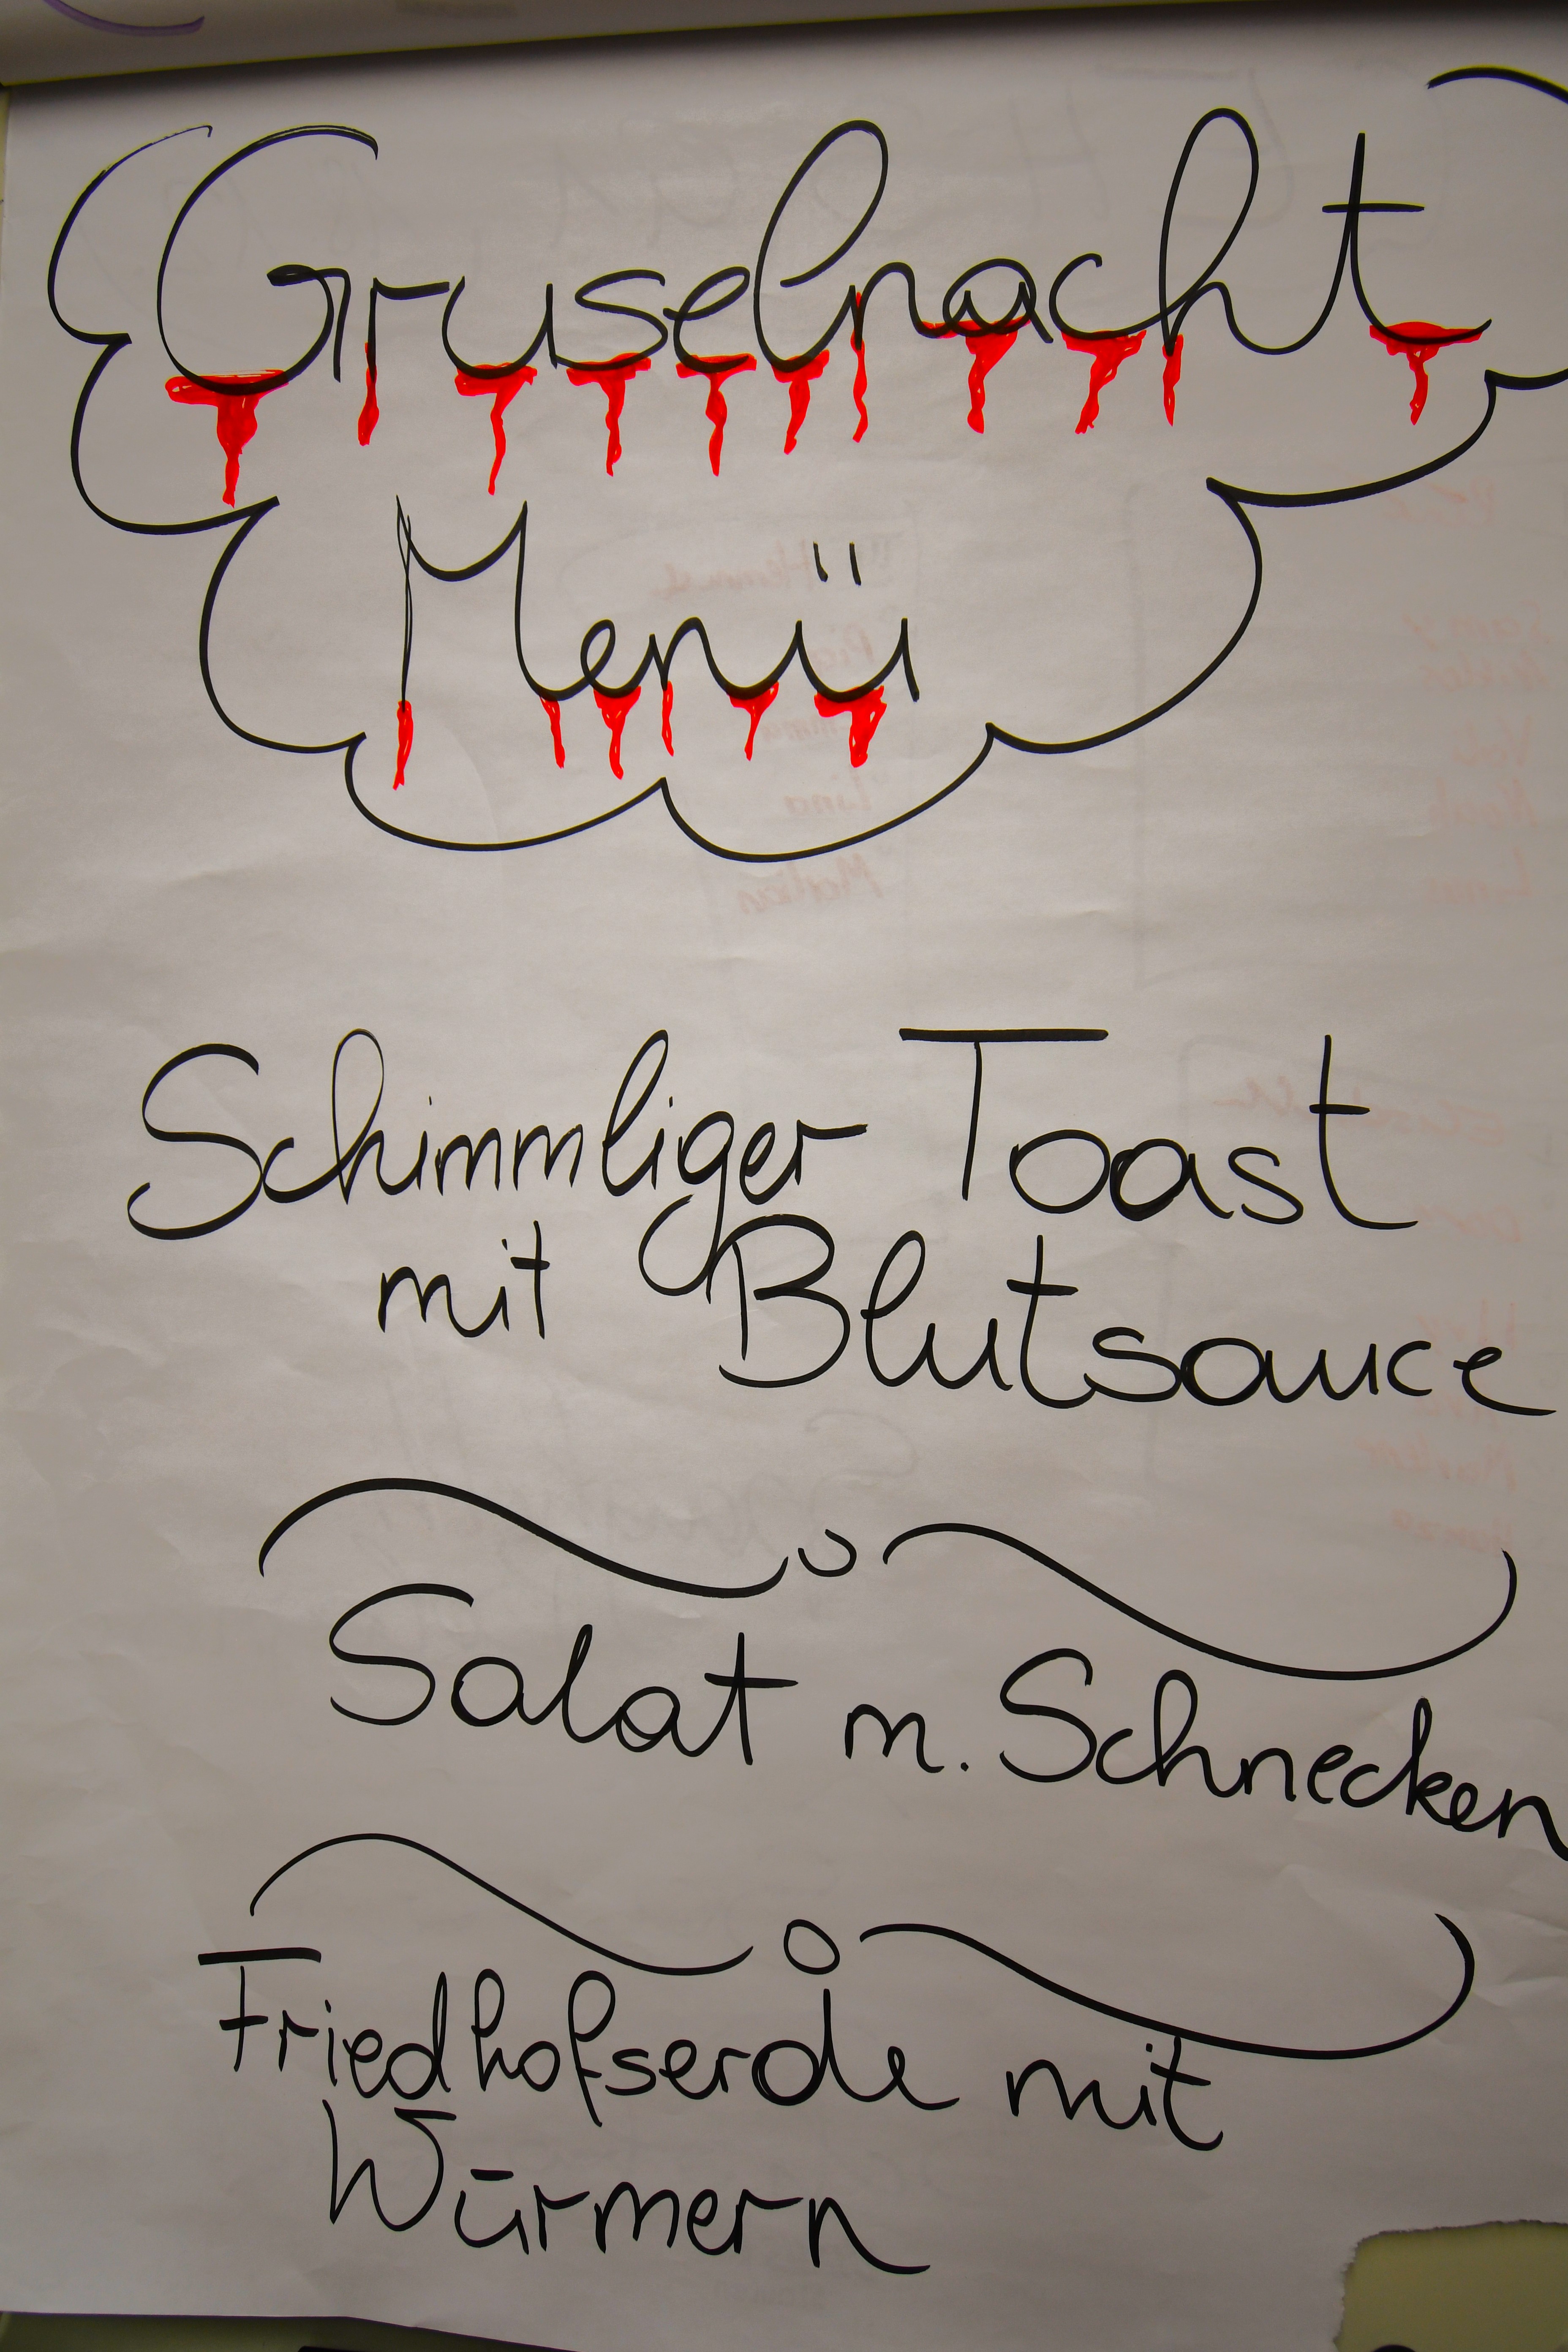 Gruselnacht
Menü
Schimmliger Toast
mit Blutsauce
Salat m. Schnecken
Friedhofserde mit
Würmern